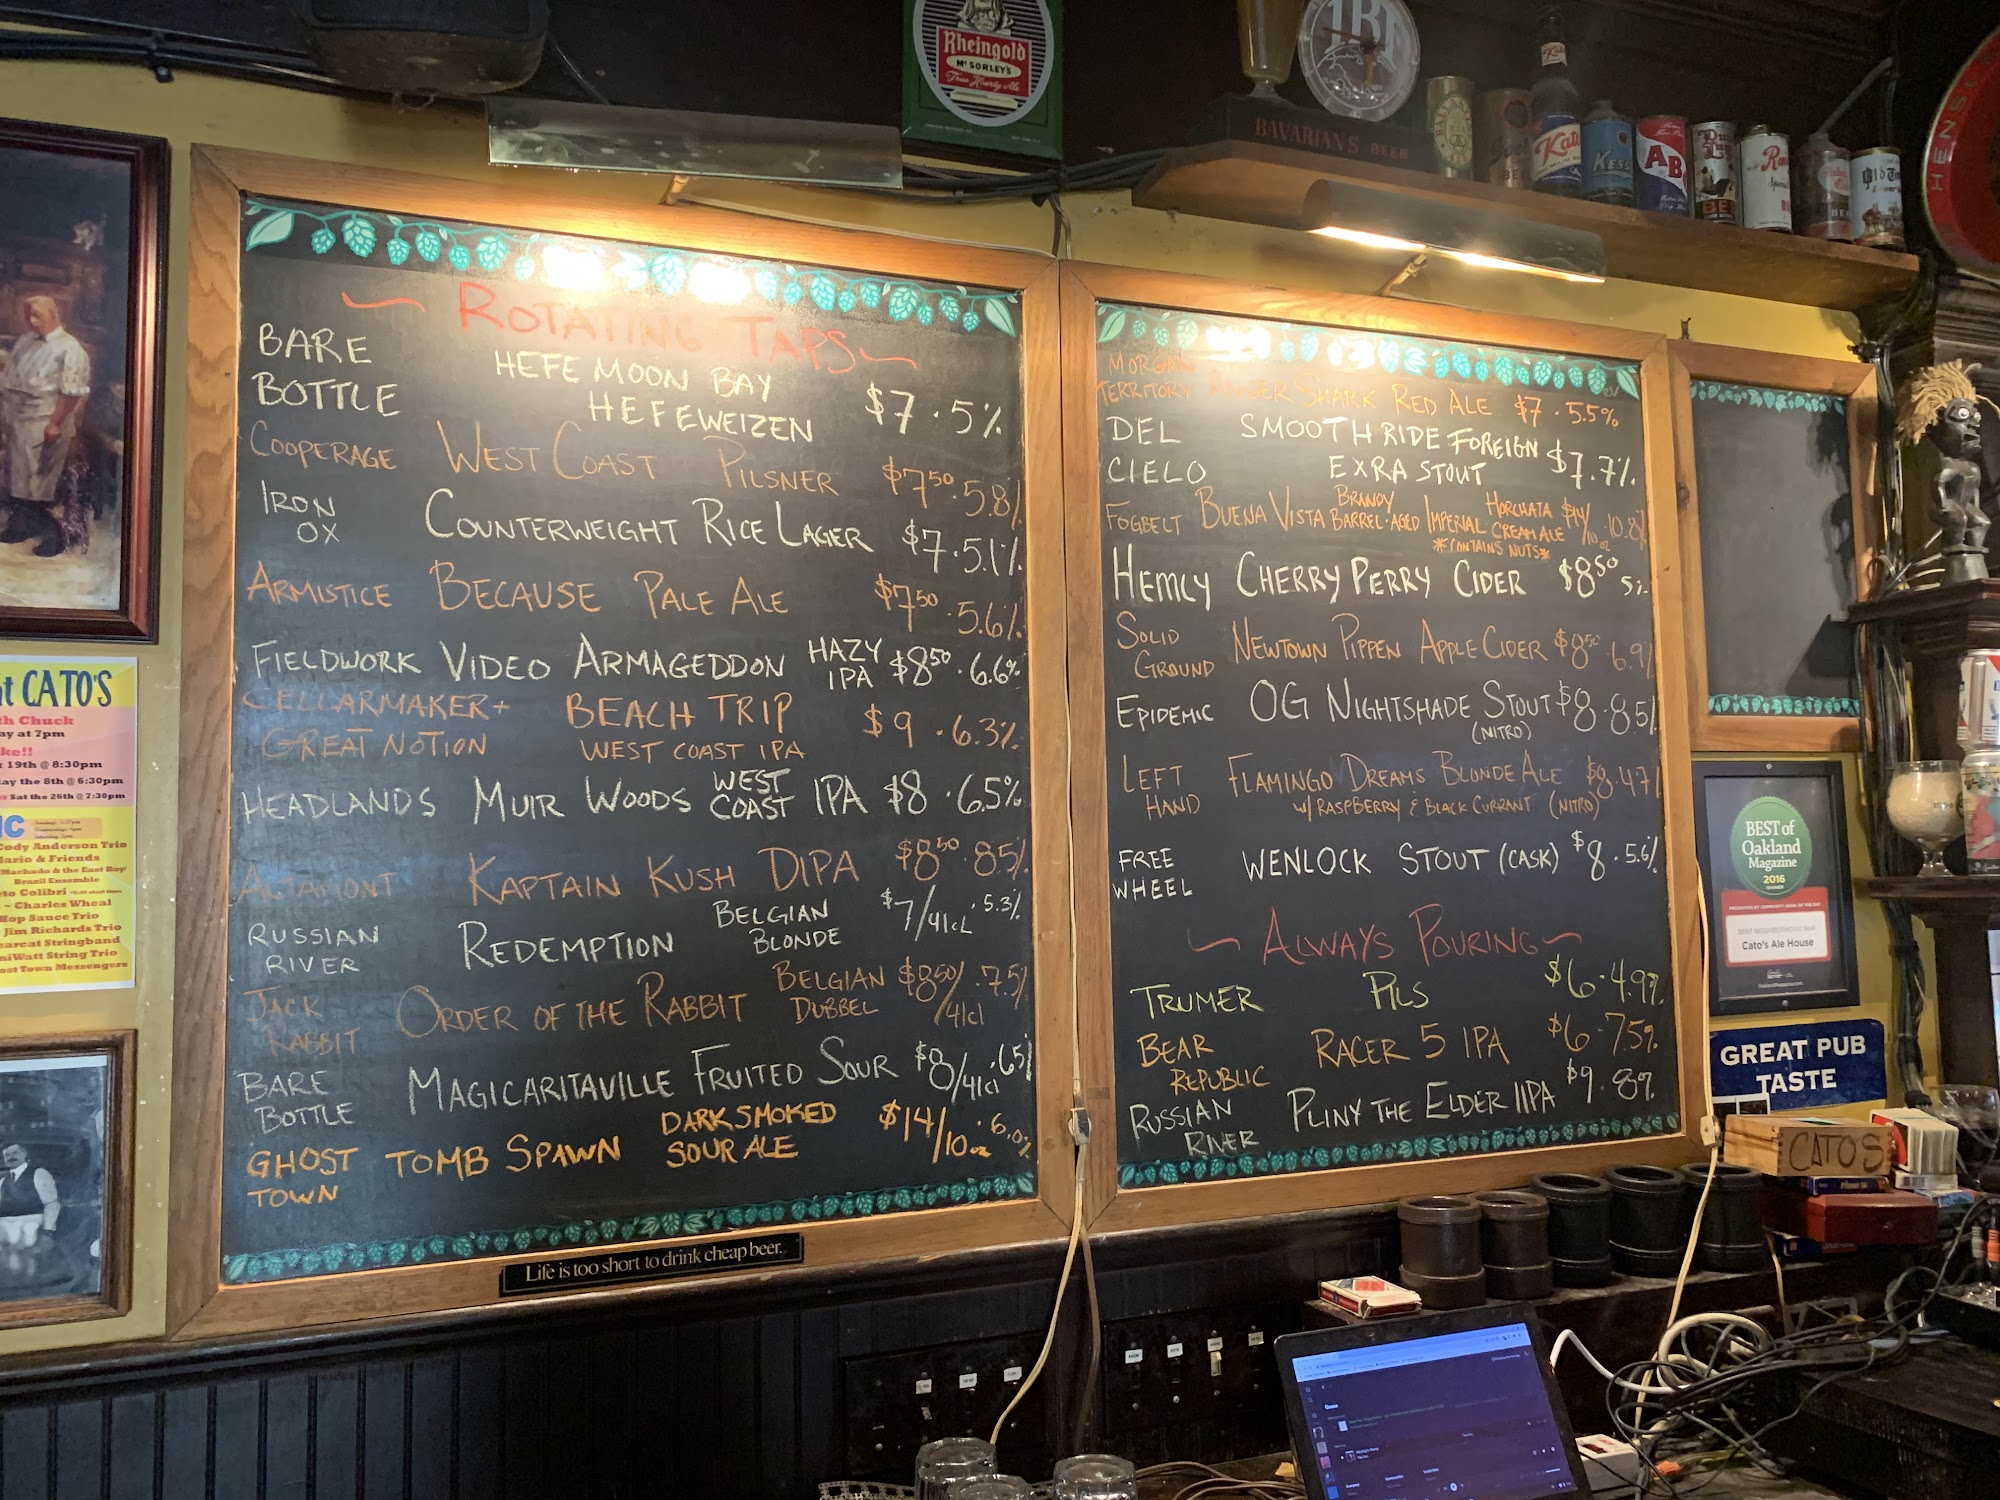 Rheingold
McSORLEY'S
True Hearty Ale
BAVARIAN'S BEER
KESS
AB
~ ROTATING TAPS ~
BARE BOTTLE HEFE MOON BAY HEFEWEIZEN $7 . 5%
COOPERAGE WEST COAST PILSNER $7.50 . 5.8%
IRON OX COUNTERWEIGHT RICE LAGER $7 . 5.1%
ARMISTICE BECAUSE PALE ALE $7.50 . 5.6%
FIELDWORK VIDEO ARMAGEDDON HAZY IPA $8.50 . 6.6%
CELLARMAKER + GREAT NOTION BEACH TRIP WEST COAST IPA $9 . 6.3%
HEADLANDS MUIR WOODS WEST COAST IPA $8 . 6.5%
ALTAMONT KAPTAIN KUSH DIPA $8.50 . 8.5%
RUSSIAN RIVER REDEMPTION BELGIAN BLONDE $7/41cL . 5.3%
JACK RABBIT ORDER OF THE RABBIT BELGIAN DUBBEL $8.50/41cl . 7.5%
BARE BOTTLE MAGICARITAVILLE FRUITED SOUR $8/41cl . 6.5%
GHOST TOWN TOMB SPAWN DARK SMOKED SOUR ALE $14/10oz . 6.0%
Life is too short to drink cheap beer.
MORGAN TERRITORY SHARK RED ALE $7 . 5.5%
DEL CIELO SMOOTH RIDE FOREIGN EXRA STOUT $7 . 7%
FOGBELT BUENA VISTA BRANDY BARREL-AGED IMPERIAL HORCHATA CREAM ALE $14/10oz . 10.8%
*CONTAINS NUTS*
HEMLY CHERRY PERRY CIDER $8.50 5%
SOLID GROUND NEWTOWN PIPPEN APPLE CIDER $8.50 . 6.9%
EPIDEMIC OG NIGHTSHADE STOUT (NITRO) $8 . 8.5%
LEFT HAND FLAMINGO DREAMS BLONDE ALE W/ RASPBERRY & BLACK CURRANT (NITRO) $8 . 4.7%
FREE WHEEL WENLOCK STOUT (CASK) $8 . 5.6%
~ ALWAYS POURING ~
TRUMER PILS $6 . 4.9%
BEAR REPUBLIC RACER 5 IPA $6 . 7.5%
RUSSIAN RIVER PLINY THE ELDER IIPA $9 . 8%
at CATO'S
th Chuck
ay at 7pm
ke!!
19th @ 8:30pm
ay the 8th @ 6:30pm
Sat the 26th @ 7:30pm
IC
Cody Anderson Trio
Mario & Friends
Machado & the East Bay/
Brazil Ensemble
to Colibri
~ Charles Wheal
Hop Sauce Trio
Jim Richards Trio
earcat Stringband
niWatt String Trio
ost Town Messengers
BEST of
Oakland
Magazine
2016
WINNER
BEST NEIGHBORHOOD BAR
Cato's Ale House
GREAT PUB
TASTE
CATO'S